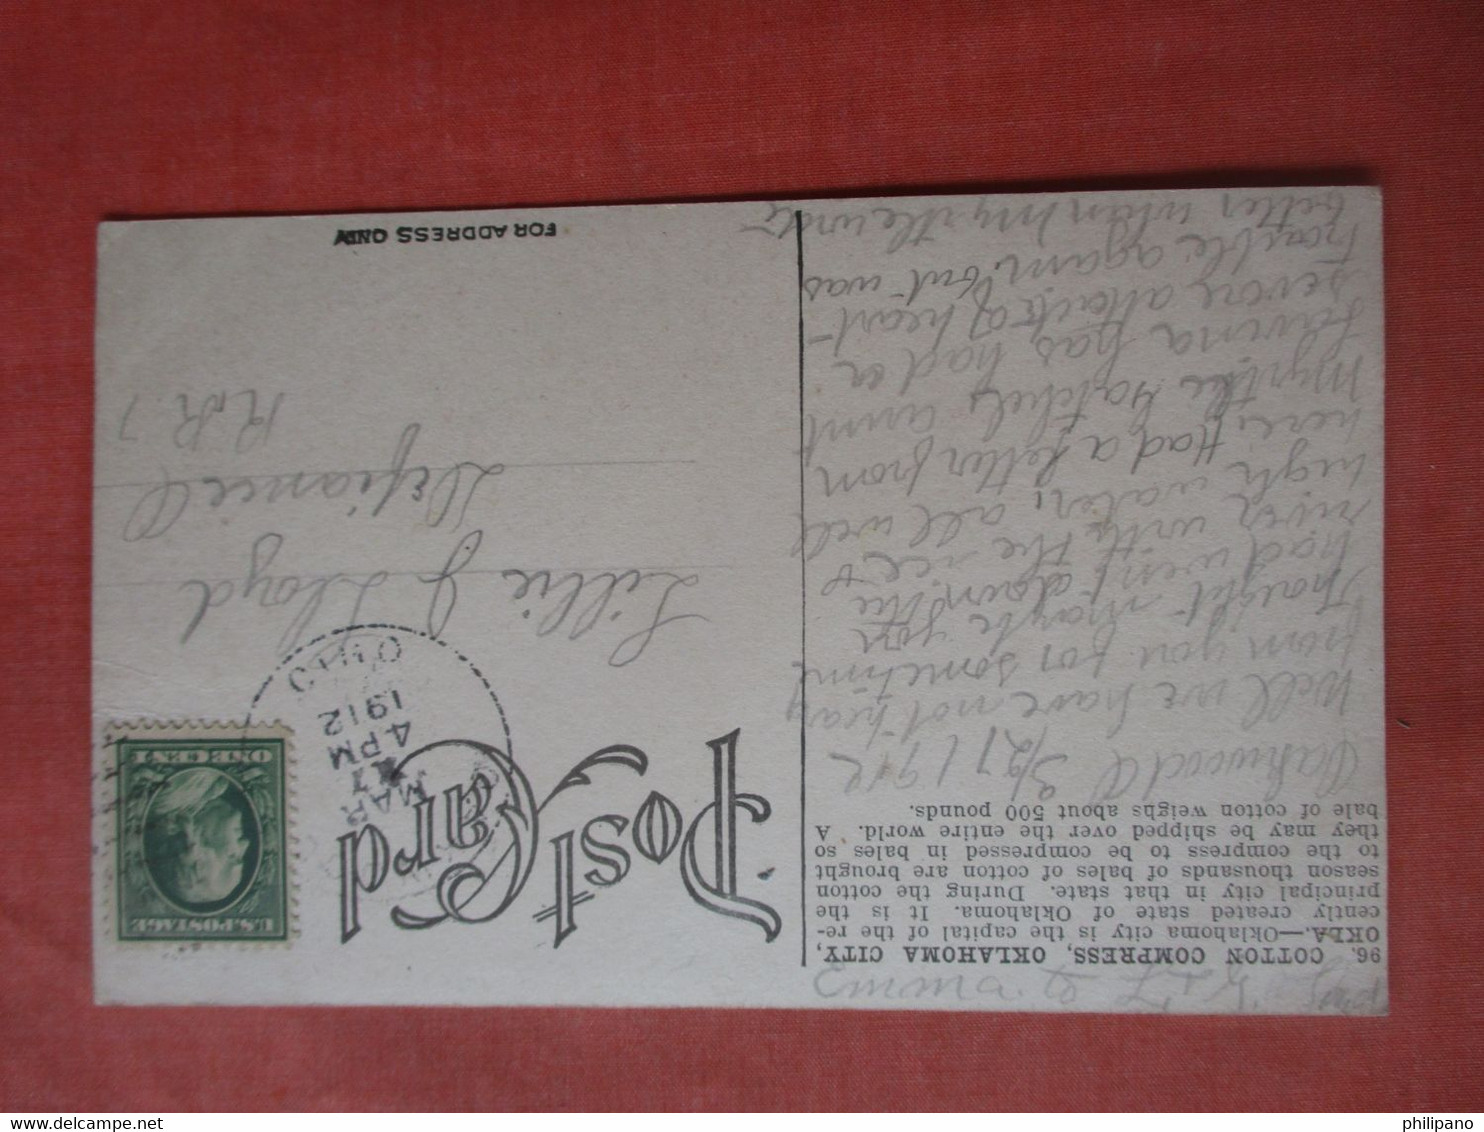 96. COTTON COMPRESS, OKLAHOMA CITY,
OKLA.—Oklahoma city is the capital of the re-
cently created state of Oklahoma. It is the
principal city in that state. During the cotton
season thousands of bales of cotton are brought
to the compress to be compressed in bales so
they may be shipped over the entire world. A
bale of cotton weighs about 500 pounds.
Oakwood O 3/27/1912
Well we have not hear
from you for sometime
thaight maybe you
had went down the
river with the ice &
high water, all well
here, Had a letter from
Myrtle Hatchel, aunt
Lavina has had a
severe attack of heart-
trouble again but was
better when Myrtle wrote
Emma &
Post Card
U.S. POSTAGE
ONE CENT
MAR
27
4 PM
1912
OHIO
Lillie J Lloyd
Defiance O
R.R. 7
FOR ADDRESS ONLY
philipano